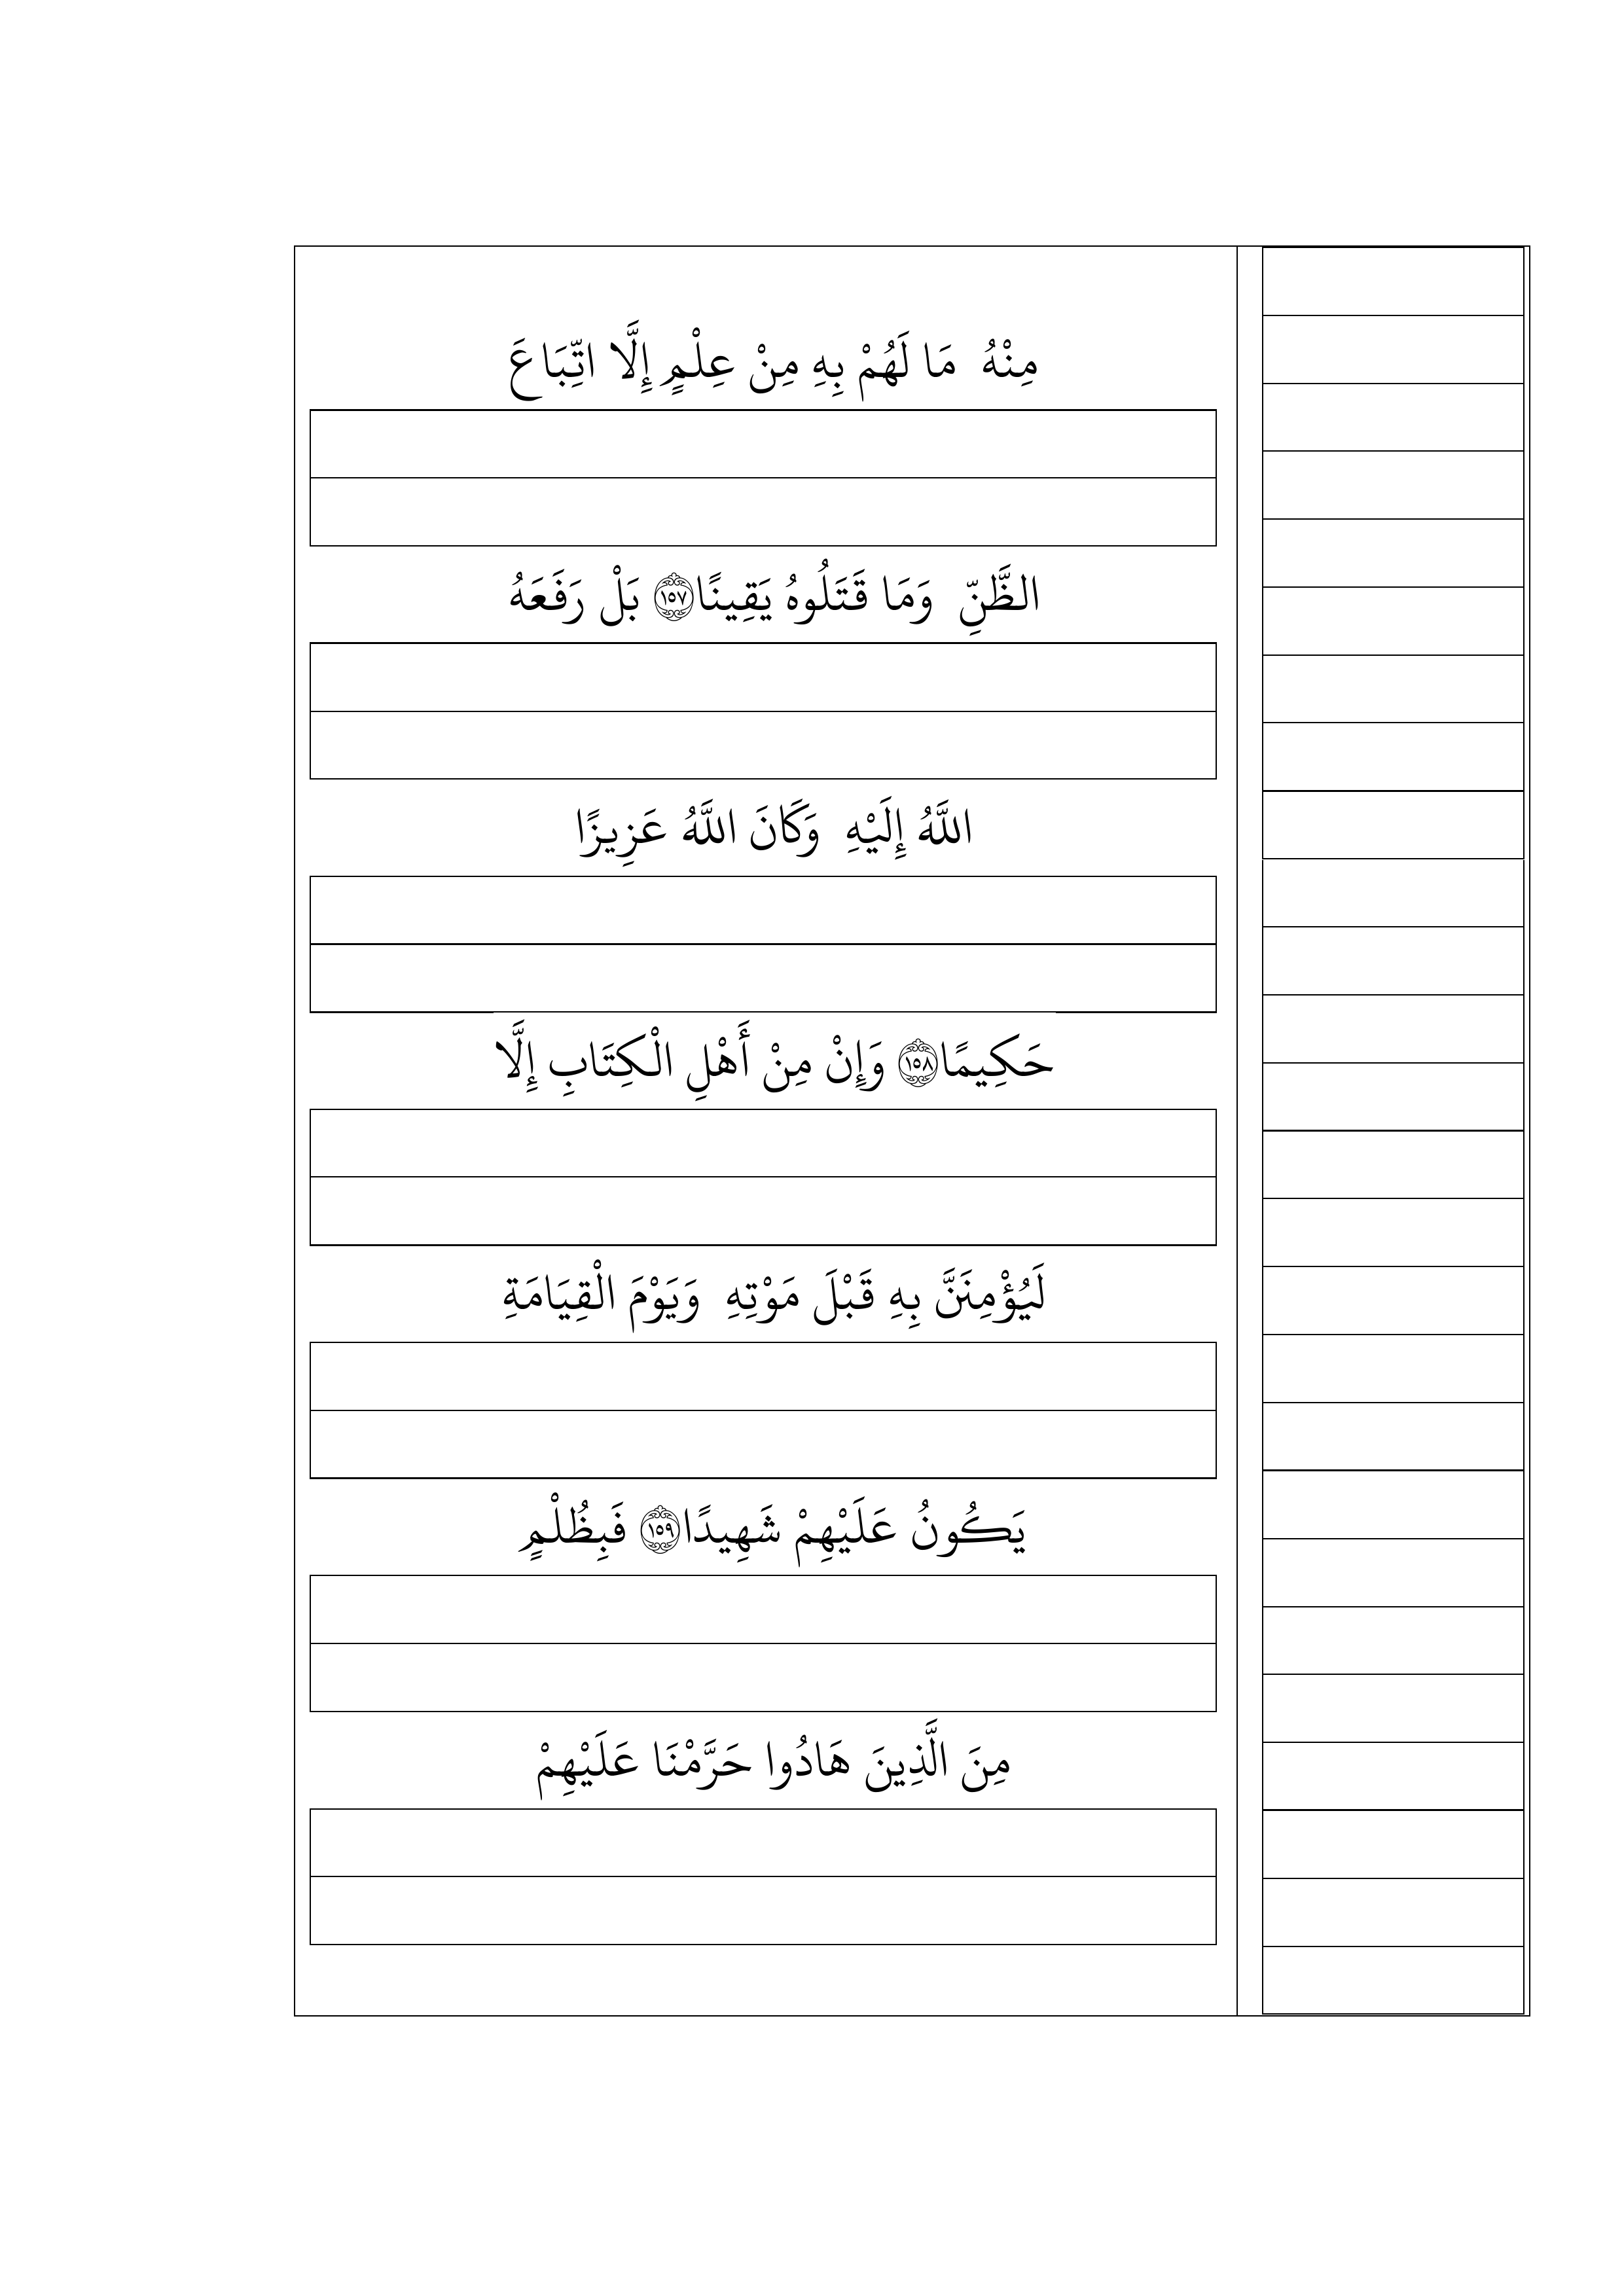 مِنْهُ مَا لَهُمْ بِهِ مِنْ عِلْمٍ إِلَّا اتِّبَاعَ
الظَّنِّ وَمَا قَتَلُوهُ يَقِينًا ١٥٧ بَلْ رَفَعَهُ
اللَّهُ إِلَيْهِ وَكَانَ اللَّهُ عَزِيزًا
حَكِيمًا ١٥٨ وَإِنْ مِنْ أَهْلِ الْكِتَابِ إِلَّا
لَيُؤْمِنَنَّ بِهِ قَبْلَ مَوْتِهِ وَيَوْمَ الْقِيَامَةِ
يَكُونُ عَلَيْهِمْ شَهِيدًا ١٥٩ فَبِظُلْمٍ
مِنَ الَّذِينَ هَادُوا حَرَّمْنَا عَلَيْهِمْ